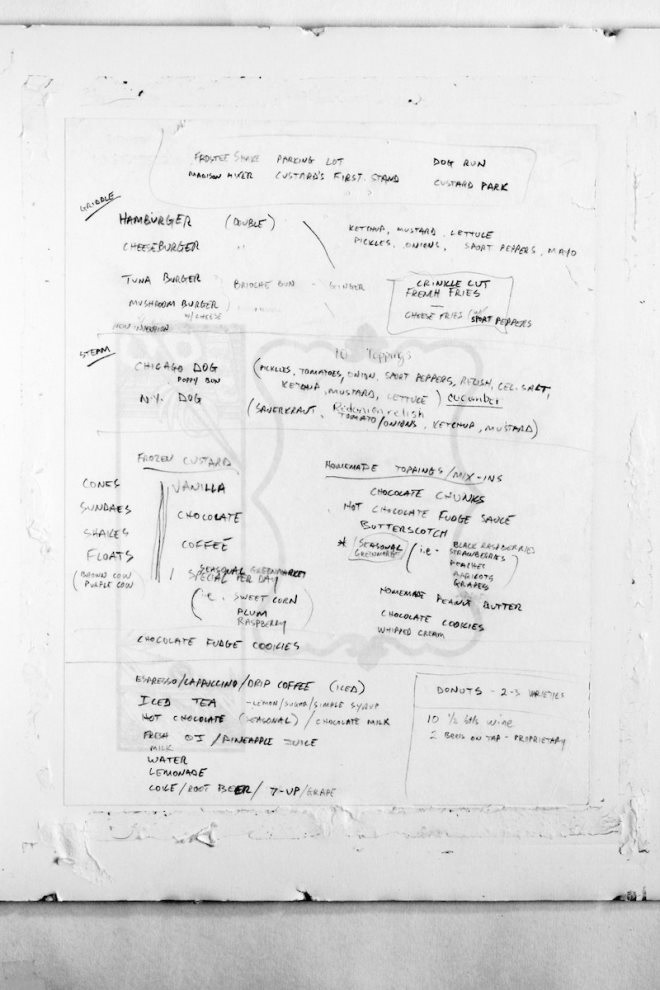 FROSTEE SHAKE PARKING LOT DOG RUN
MADISON MIXER CUSTARD'S FIRST STAND CUSTARD PARK
GRIDDLE
HAMBURGER (DOUBLE) KETCHUP, MUSTARD, LETTUCE
CHEESEBURGER " PICKLES, ONIONS, SPORT PEPPERS, MAYO
TUNA BURGER BRIOCHE BUN - GINGER
MUSHROOM BURGER
W/ CHEESE
CRINKLE CUT
FRENCH FRIES
CHEESE FRIES W/ SPORT PEPPERS
STEAM
10 Toppings
CHICAGO DOG (PICKLES, TOMATOES, ONION, SPORT PEPPERS, RELISH, CEL. SALT,
POPPY BUN KETCHUP, MUSTARD, LETTUCE) cucumber
N.Y. DOG (SAUERKRAUT, Redonionrelish
TOMATO/ONIONS, KETCHUP, MUSTARD)
FROZEN CUSTARD
CONES VANILLA
SUNDAES CHOCOLATE
SHAKES COFFEE
FLOATS SEASONAL GREENMARKET
(BROWN COW SPECIAL PER DAY
PURPLE COW)
(i.e. SWEET CORN
PLUM
RASPBERRY)
CHOCOLATE FUDGE COOKIES
HOMEMADE TOPPINGS/MIX-INS
CHOCOLATE CHUNKS
HOT CHOCOLATE FUDGE SAUCE
BUTTERSCOTCH
* SEASONAL (i.e - BLACK RASPBERRIES
GREENMARKET STRAWBERRIES
PEACHES
APRICOTS
GRAPES)
HOMEMADE PEANUT BUTTER
CHOCOLATE COOKIES
WHIPPED CREAM
ESPRESSO/CAPPUCCINO/DRIP COFFEE (ICED)
ICED TEA - LEMON/SUGAR/SIMPLE SYRUP
HOT CHOCOLATE (SEASONAL) / CHOCOLATE MILK
FRESH OJ / PINEAPPLE JUICE
MILK
WATER
LEMONADE
COKE/ROOT BEER/ 7-UP/GRAPE
DONUTS - 2-3 VARIETIES
10 ½ btls wine
2 BEERS ON TAP - PROPRIETARY